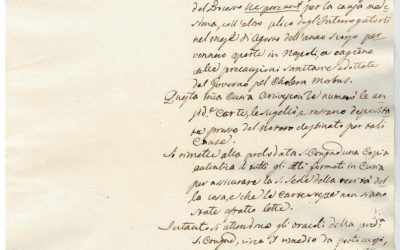 del Processo ne pereant per la causa mede-
sima, coll'altro plico degl'Interrogatorii
nel mese di Agosto dell'anno scorso per-
vennero aperte in Napoli, a cagione
delle precauzioni sanitarie adottate
dal Governo pel Cholera Morbus.
Questa Curia le
carte, le suggellò, e restano deposita-
te presso del Notaro destinato per tali
Cause.
Si rimette alla prelodata S. Congne una Copia
autentica di tutti gli atti formati in Curia
per assicurare la S. Sede della verità del-
la cosa, e che le Carte non siano
state affatto lette.
Intanto si attendono gli oracoli della pred.
S. Congne, circa il rimedio da praticarsi,